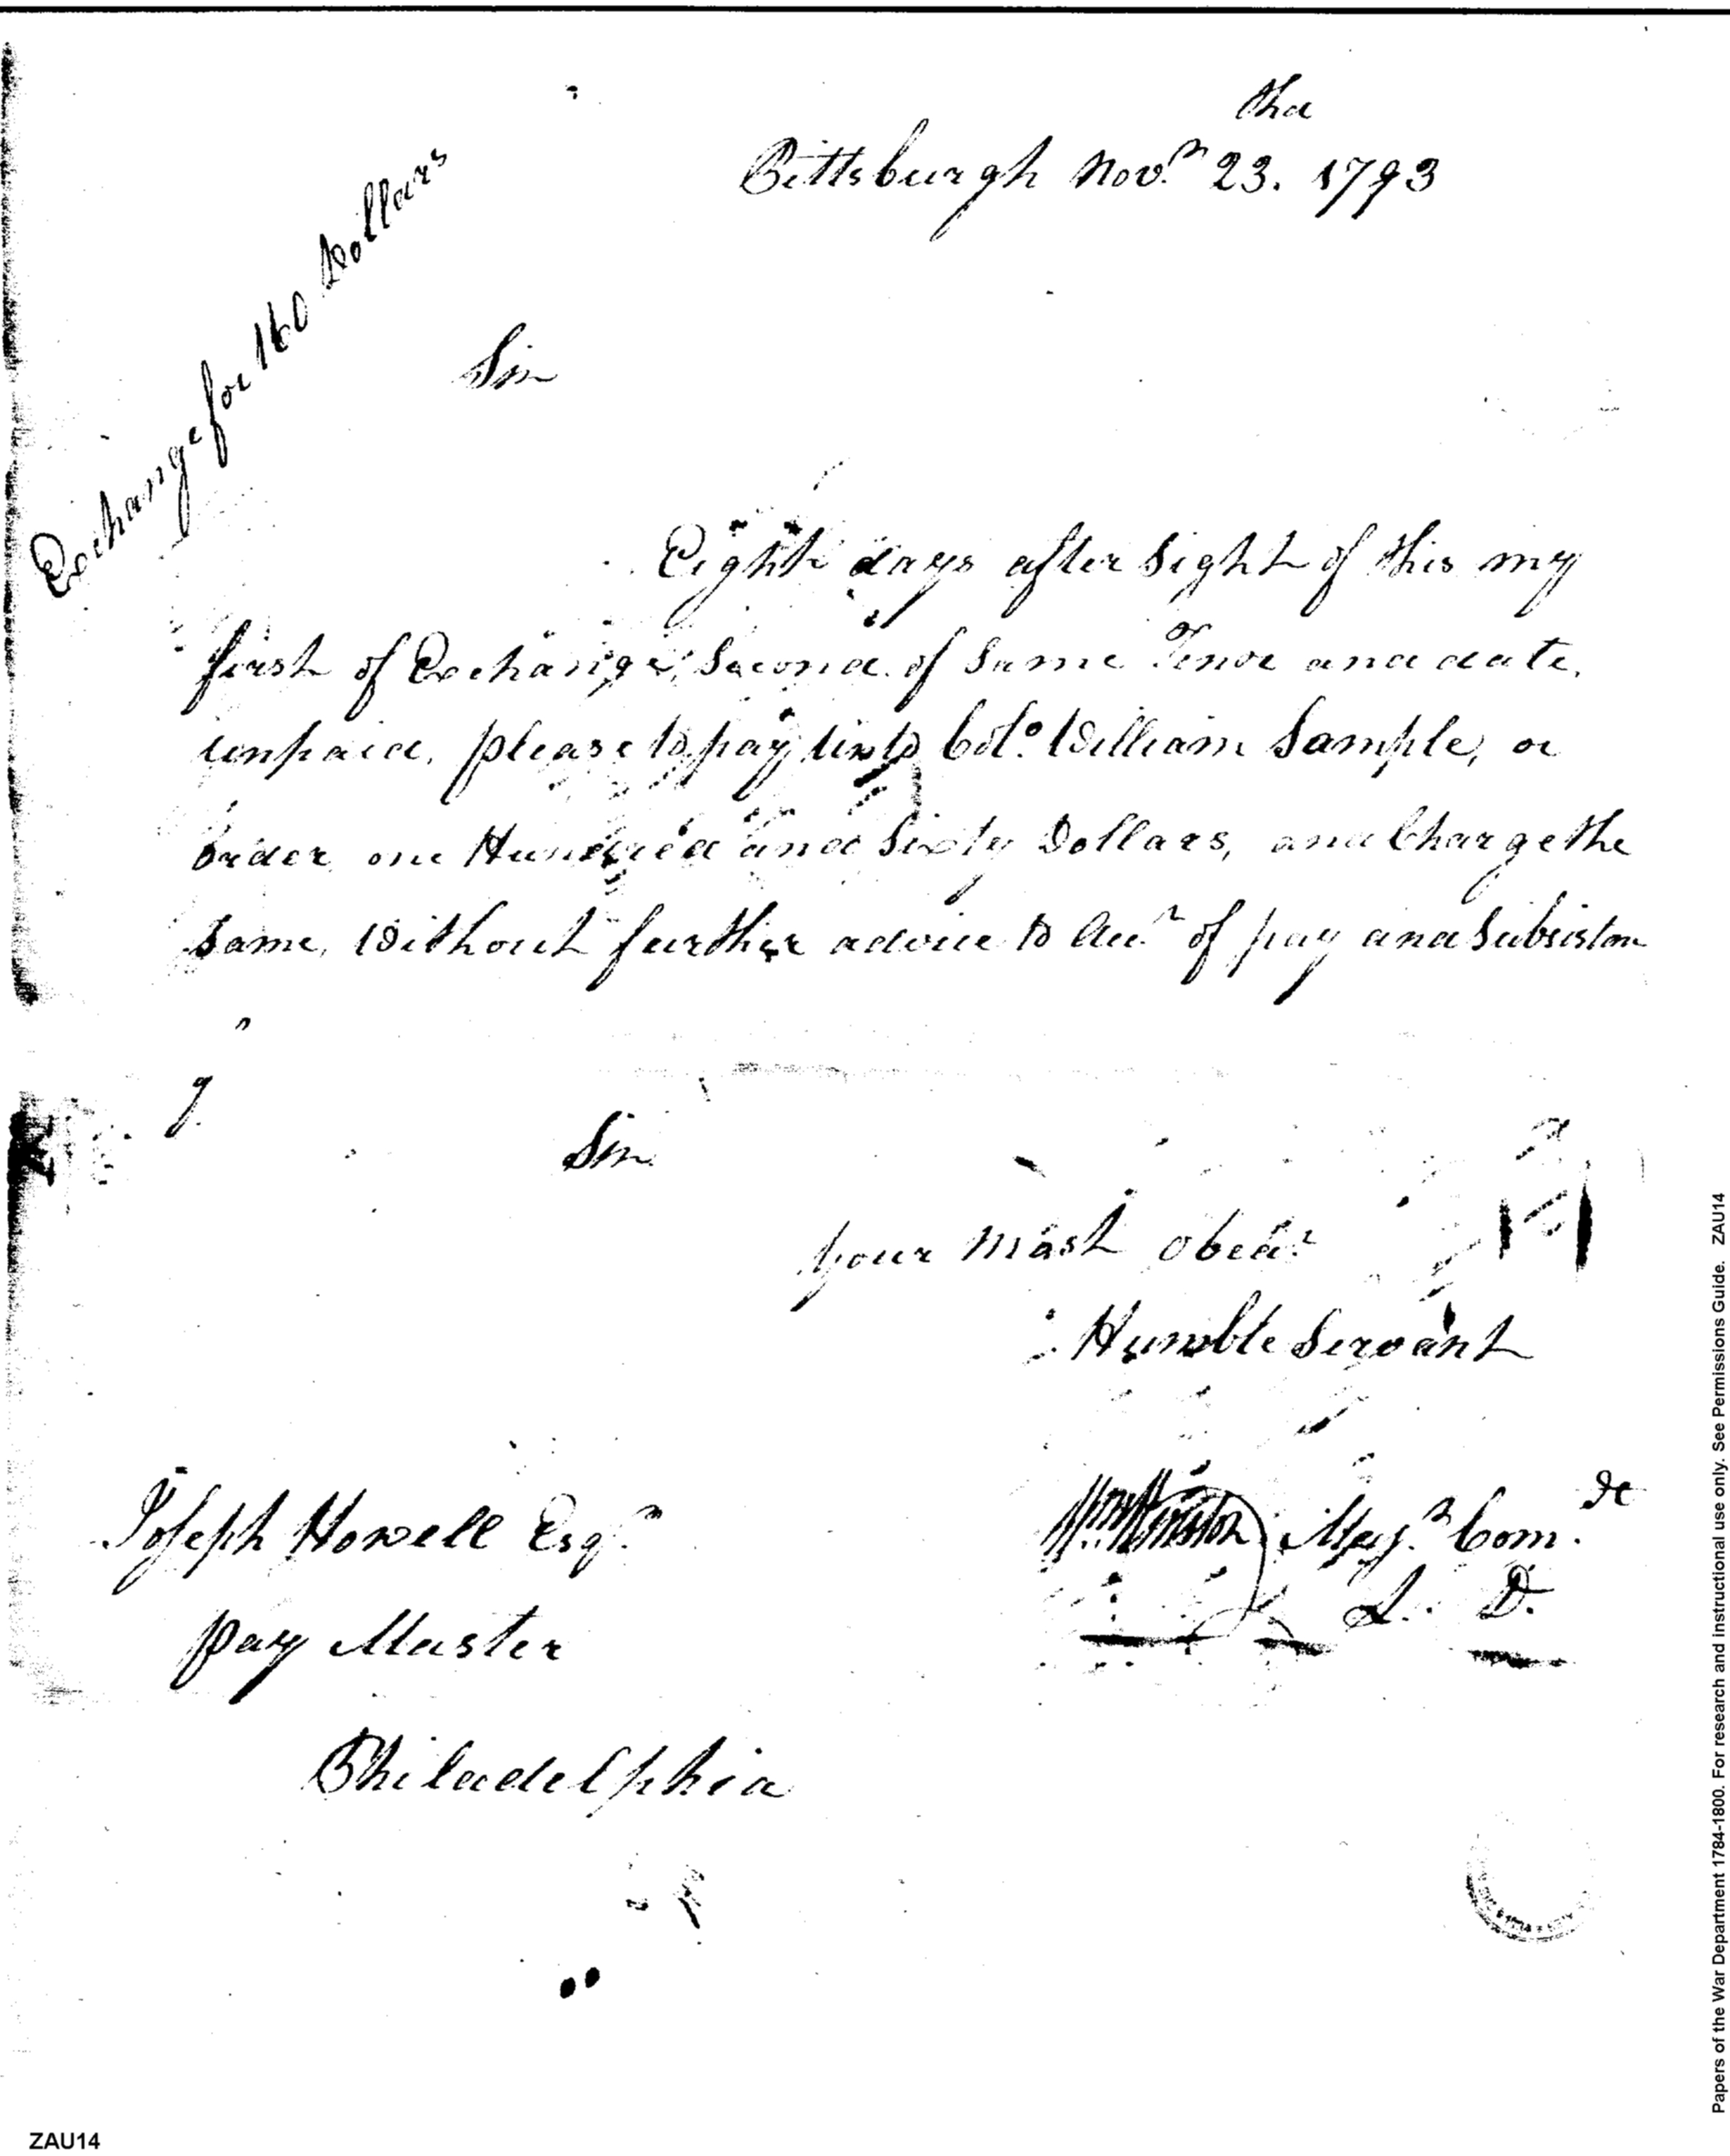 tha
Pittsburgh Nov.r 23. 1793
Exchange for 160 Dollars
Sir
Eight days after Sight of this my
first of Exchange, Second of Same Tenor and date,
unpaid, please to pay unto Col.o William Sample, or
order, one Hundred and Sixty Dollars, and Charge the
Same, Without further advice to Acc.t of pay and Subsistance
Sir
your most obed.t
Humble Servant
Wm Winston Maj.r Com.de
L. D.
Joseph Howell Esq.r
pay Master
Philadelphia
ZAU14
Papers of the War Department 1784-1800. For research and instructional use only. See Permissions Guide. ZAU14